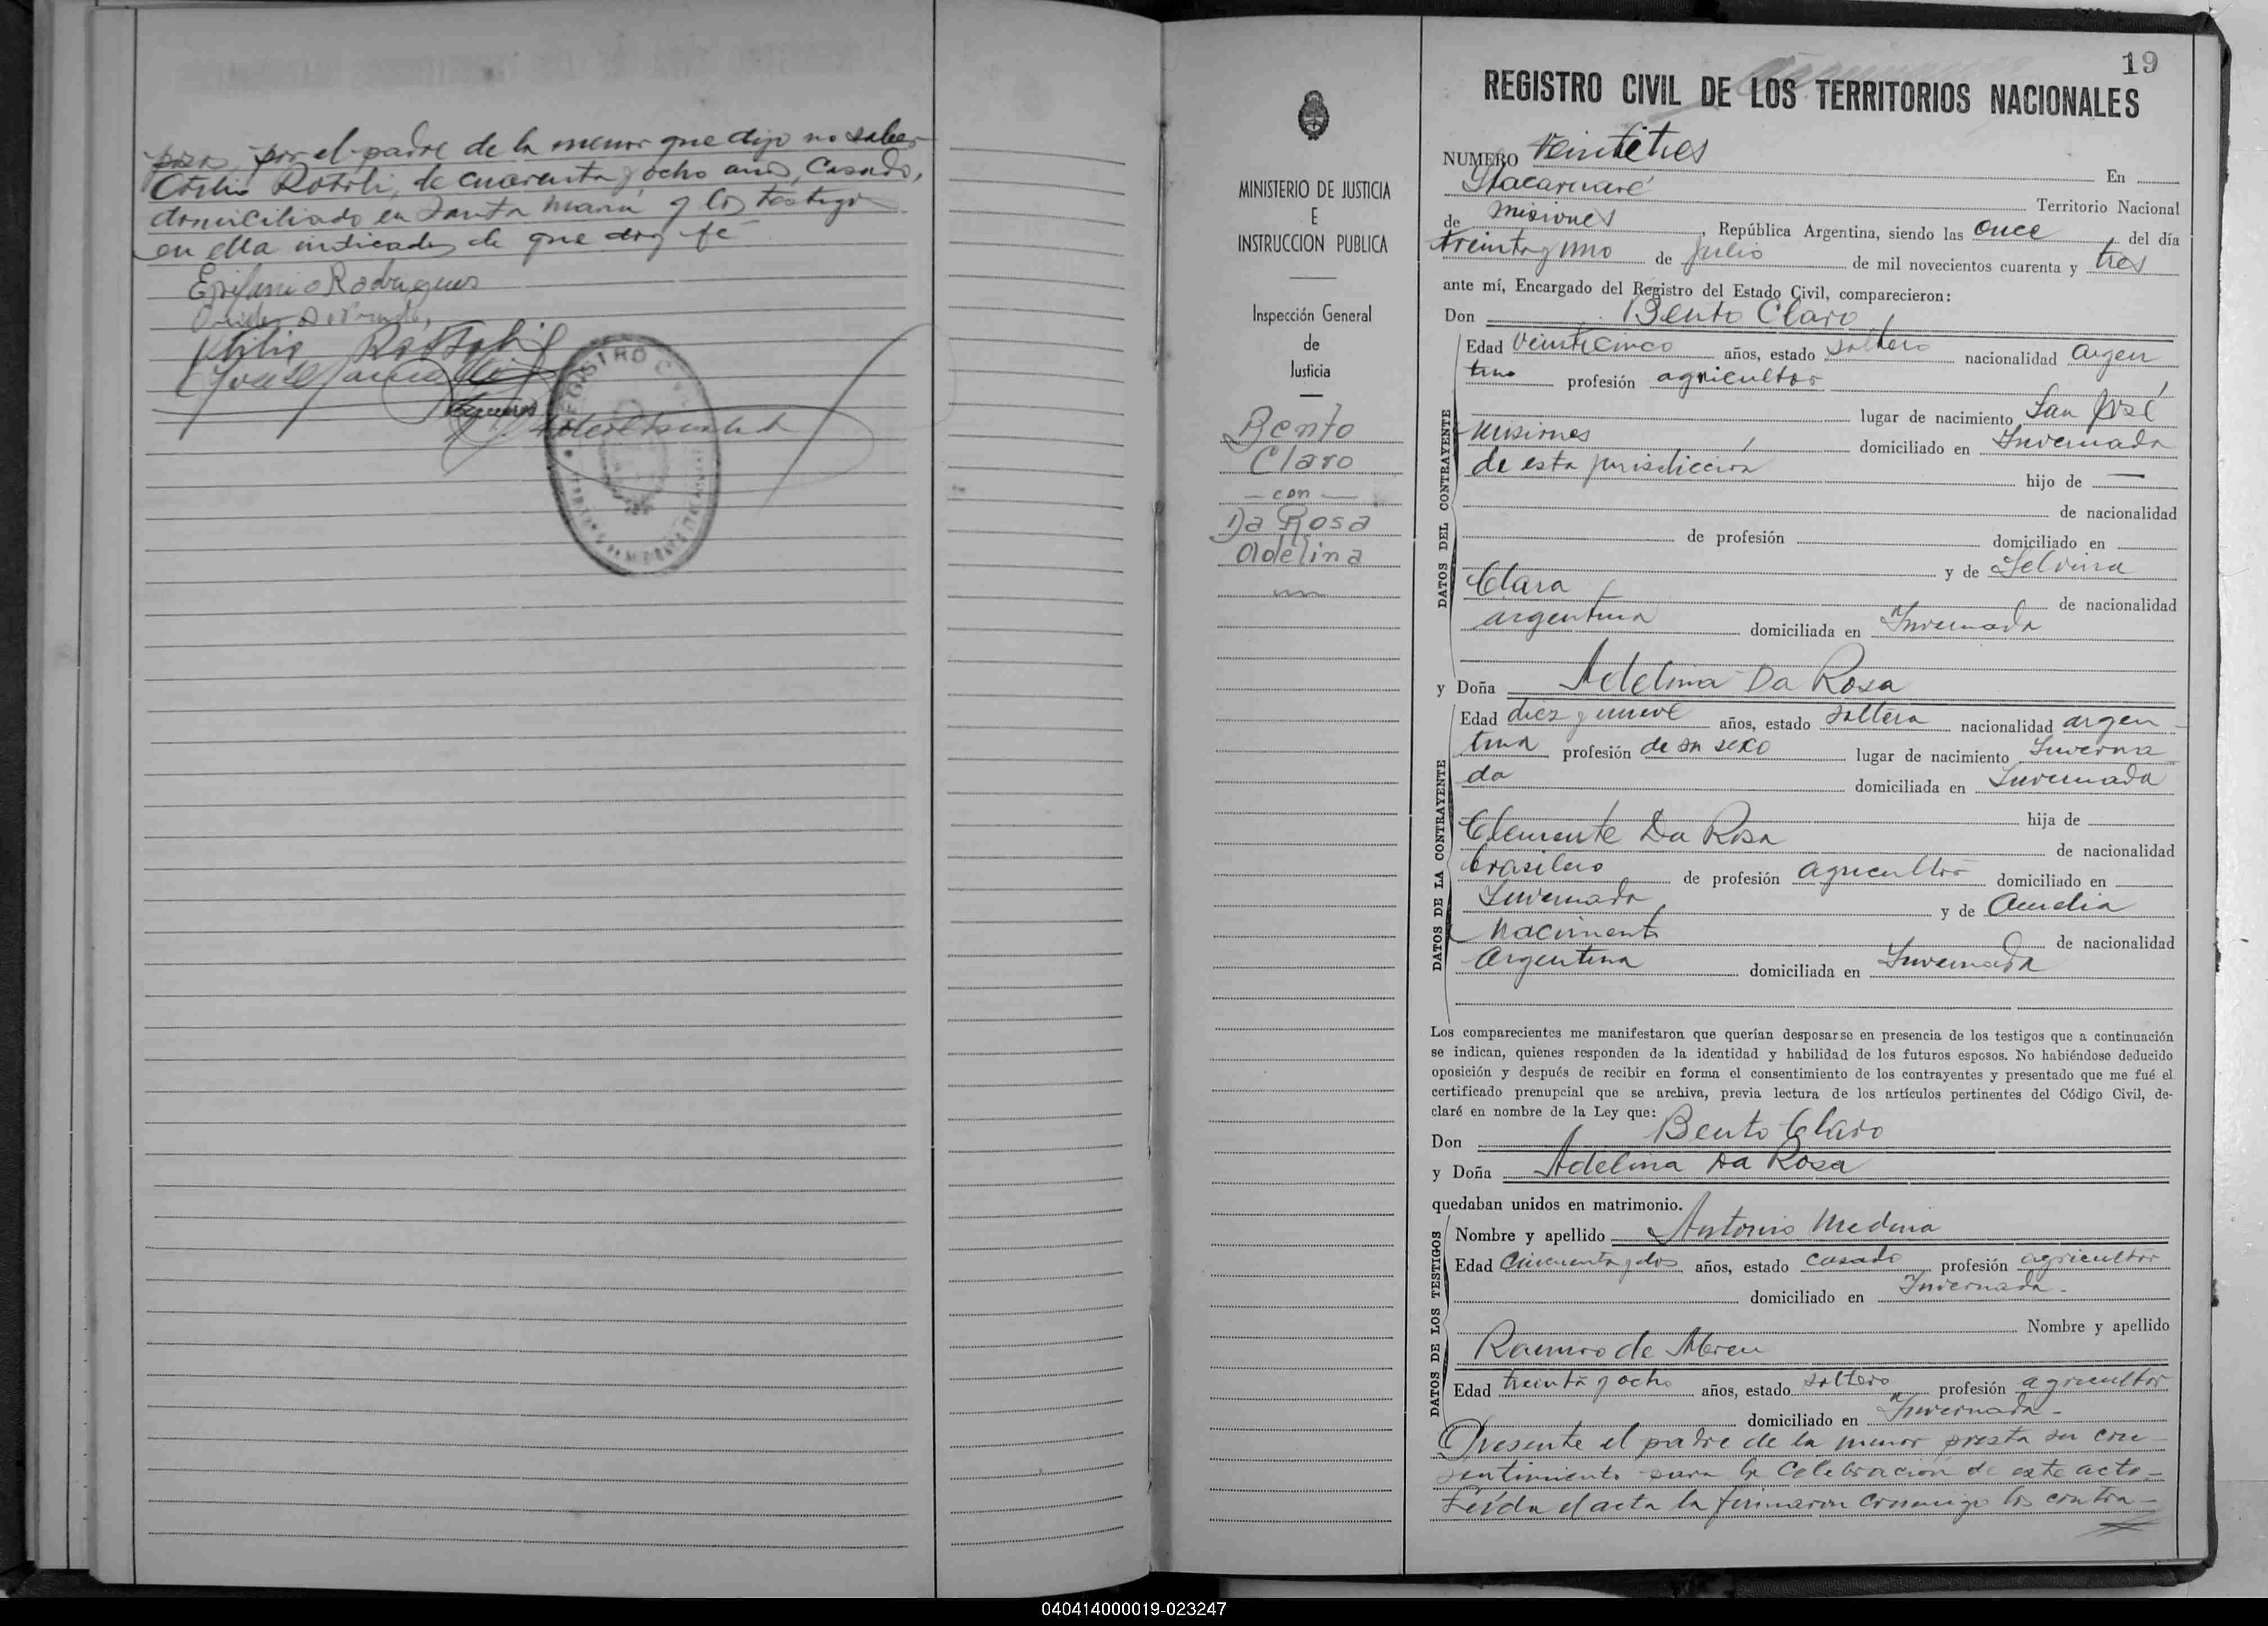 por el padre de la menor que dijo no saber
Rotoli, de cuarenta y ocho años, Casado,
domiciliado en Santa María y los testigos
en ella indicados de que doy fe
Epifanio Rodrigues
REGISTRO CIVIL
19
REGISTRO CIVIL DE LOS TERRITORIOS NACIONALES
MINISTERIO DE JUSTICIA
E
INSTRUCCION PUBLICA
Inspección General
de
Justicia
Bento
Claro
- con -
Da Rosa
Adelina
NUMERO Veintitres
En
Itacaruaré Territorio Nacional
de Misiones, República Argentina, siendo las once del día
treinta y uno de Julio de mil novecientos cuarenta y tres
ante mí, Encargado del Registro del Estado Civil, comparecieron:
Don Bento Claro
DATOS DEL CONTRAYENTE
Edad veinticinco años, estado soltero nacionalidad argen
tino profesión agricultor
lugar de nacimiento San José
Misiones domiciliado en Invernada
de esta jurisdicción hijo de —
de nacionalidad
de profesión domiciliado en
y de Selvina
Clara de nacionalidad
argentina domiciliada en Invernada
y Doña Adelina Da Rosa
DATOS DE LA CONTRAYENTE
Edad diez y nueve años, estado soltera nacionalidad argen-
tina profesión de su sexo lugar de nacimiento Inverna
da domiciliada en Invernada
hija de
Clemente Da Rosa de nacionalidad
brasilero de profesión agricultor domiciliado en
Invernada y de Amelia
Naciment de nacionalidad
Argentina domiciliada en Invernada
Los comparecientes me manifestaron que querían desposarse en presencia de los testigos que a continuación
se indican, quienes responden de la identidad y habilidad de los futuros esposos. No habiéndose deducido
oposición y después de recibir en forma el consentimiento de los contrayentes y presentado que me fué el
certificado prenupcial que se archiva, previa lectura de los artículos pertinentes del Código Civil, de-
claré en nombre de la Ley que:
Don Bento Claro
y Doña Adelina Da Rosa
quedaban unidos en matrimonio.
DATOS DE LOS TESTIGOS
Nombre y apellido Antonio Medina
Edad Cincuenta y dos años, estado casado profesión agricultor
domiciliado en Invernada -
Nombre y apellido
Ramiro de Abreu
Edad treinta y ocho años, estado soltero profesión agricultor
domiciliado en Invernada -
Presente el padre de la menor presta su con-
sentimiento para la Celebración de este acto -
Leída el acta la firmaron conmigo los contra-
040414000019-023247